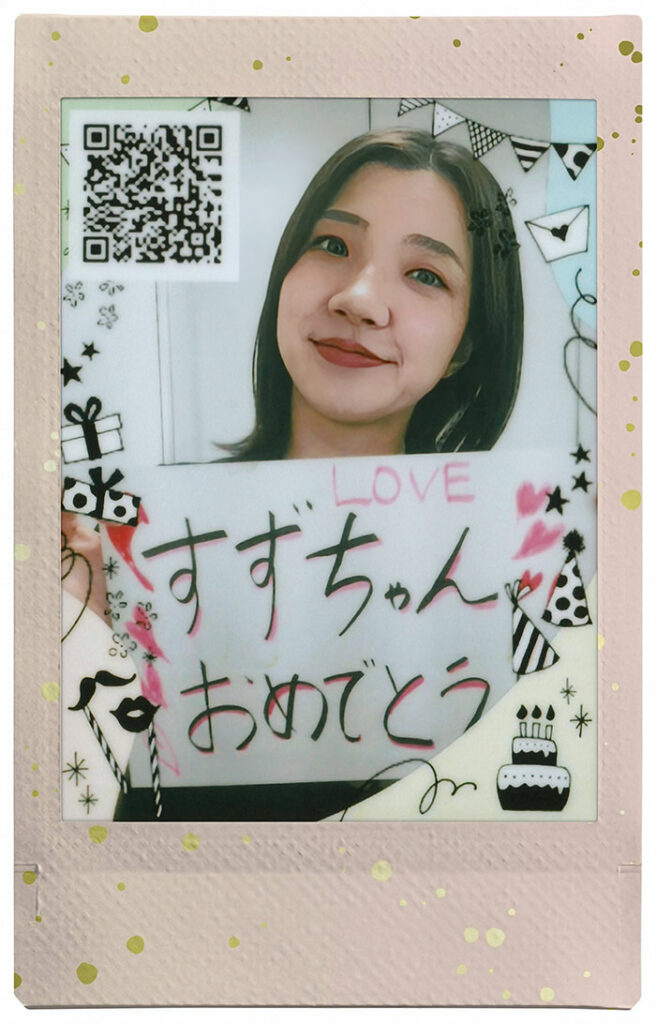 LOVE
すずちゃん
おめでとう